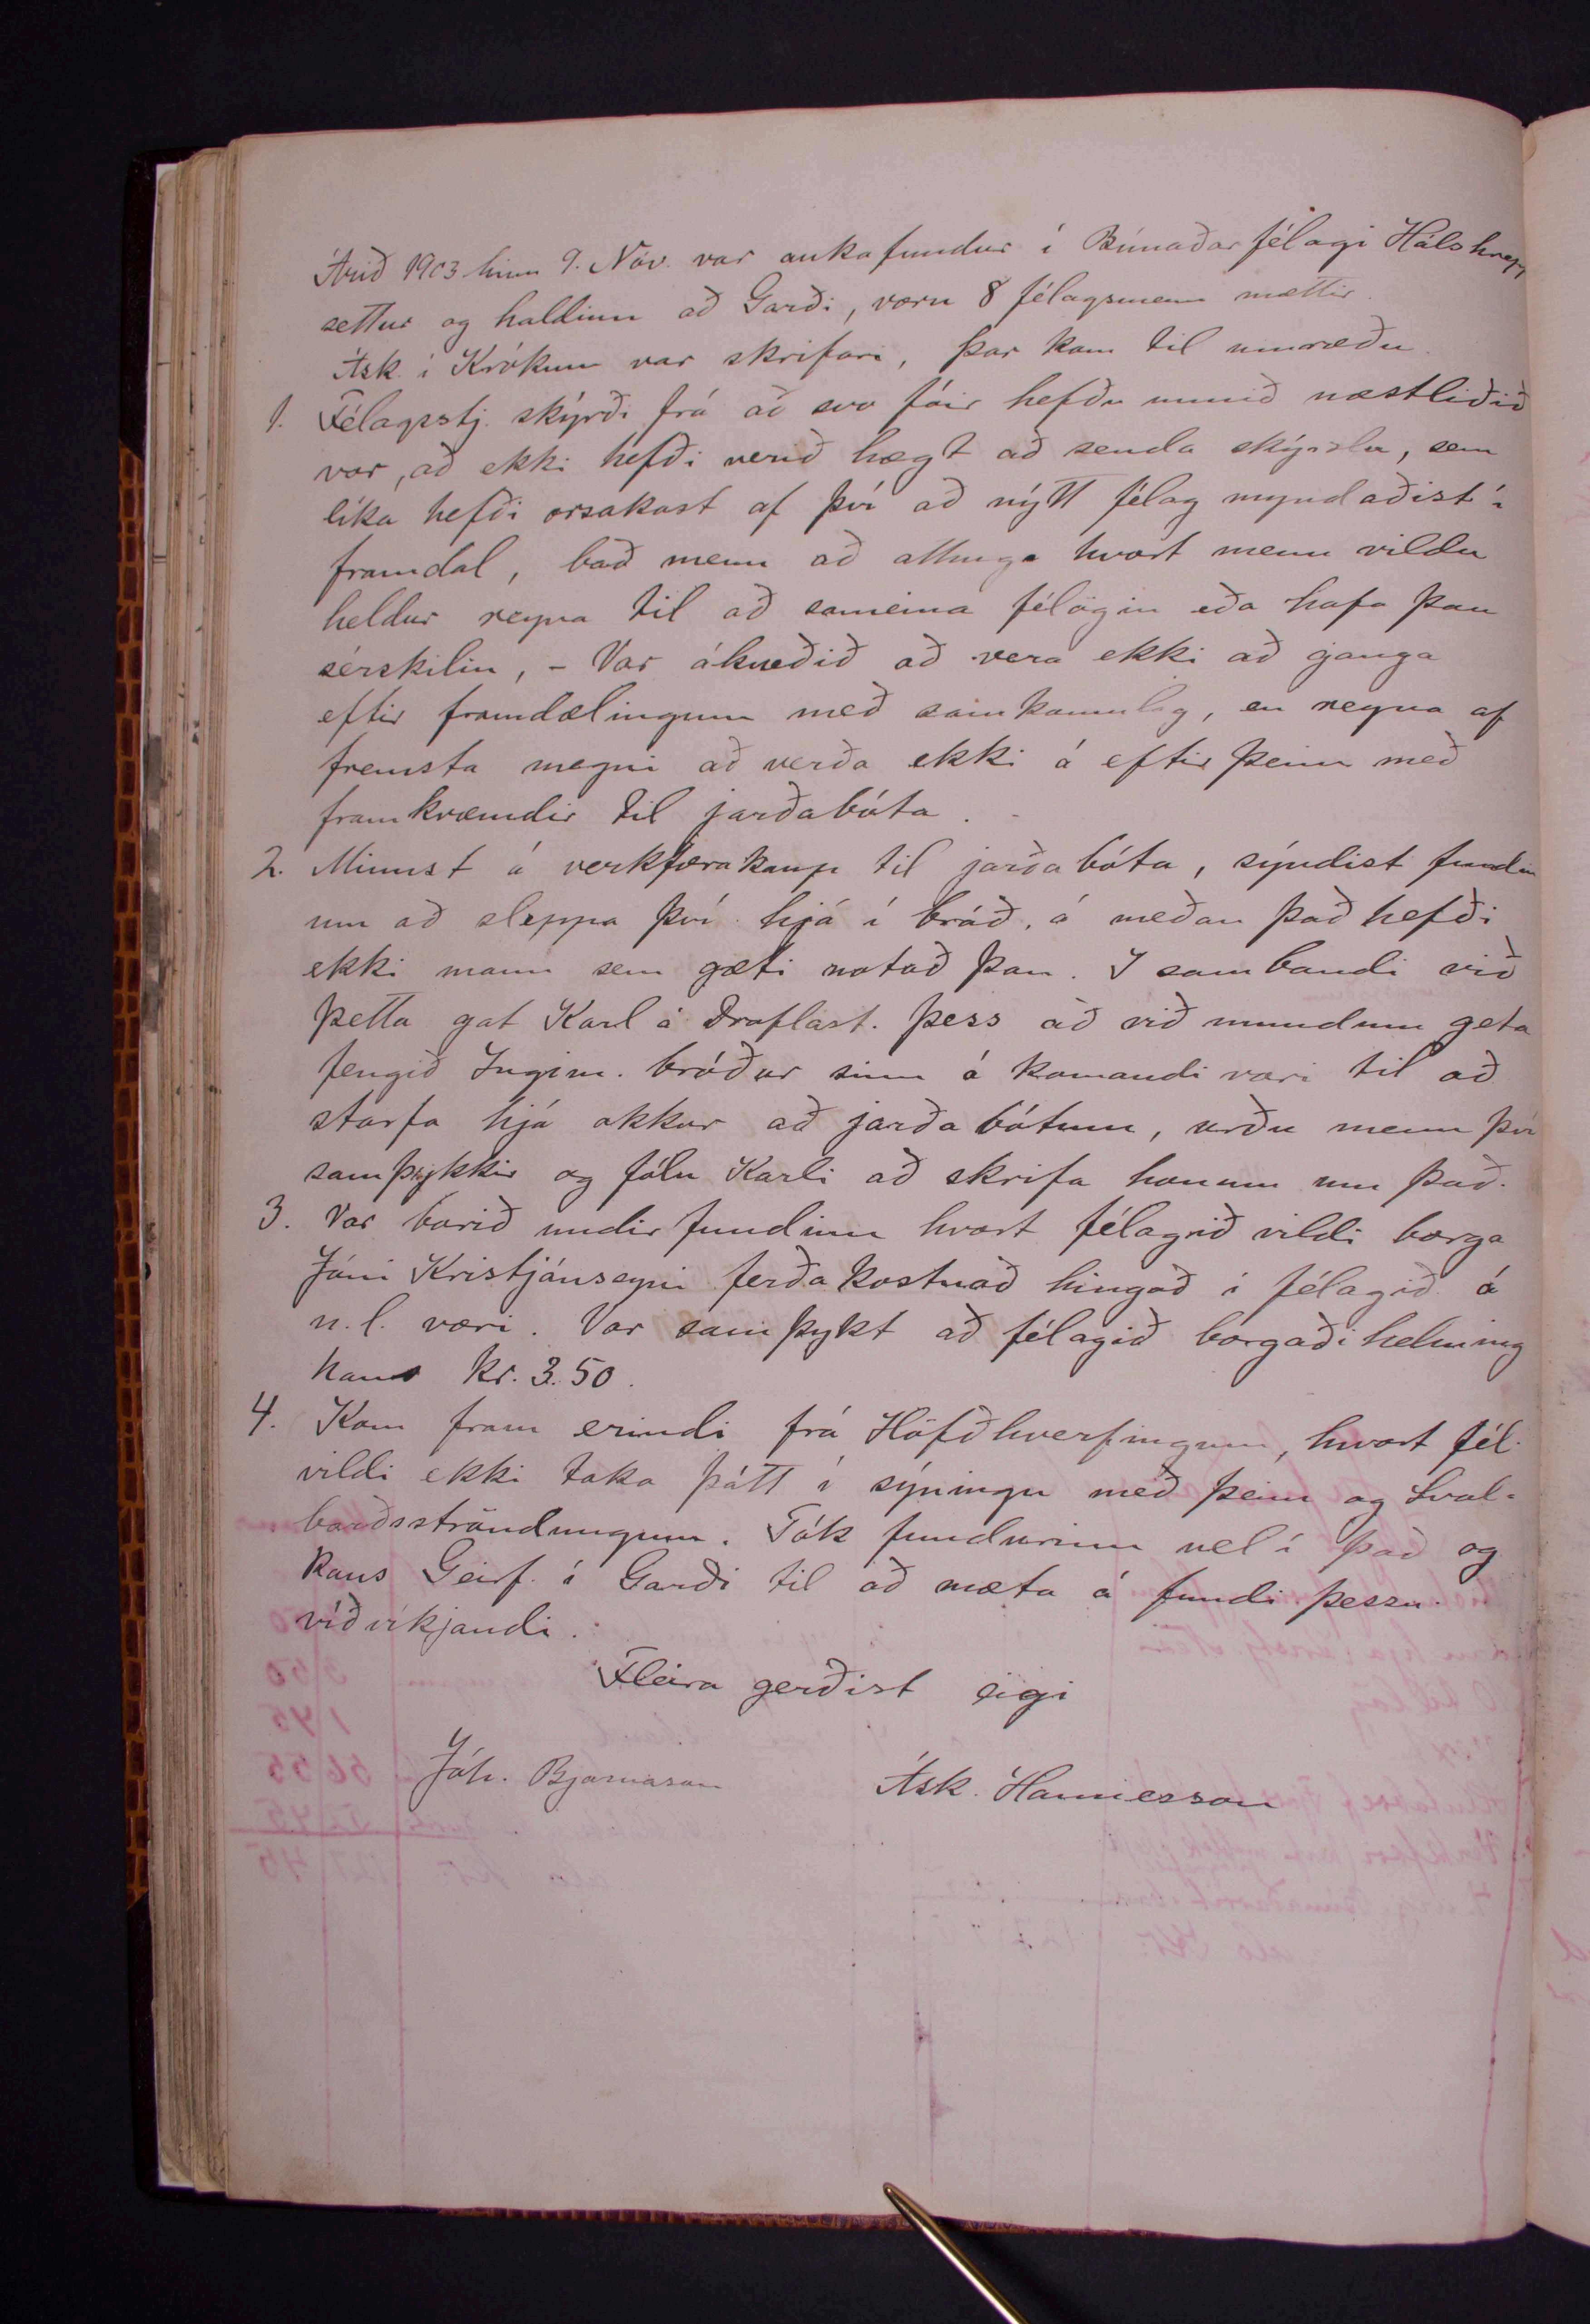 Árið 1903 hinn 9. Nóv. var aukafundur í Búnaðarfélagi Hálshrepp
settur og haldinn að Garði, voru 8 félagsmenn mættir.
Ásk. í Krókum var skrifari, þar kom til umræðu.
1. Félagsstj. skýrði frá að svo fáir hefðu unnið næstliðið
vor, að ekki hefði verið hægt að senda skýrslu, sem
líka hefði orsakast af því að nýtt félag myndaðist í
framdal, bað menn að athuga hvort menn vildu
heldur reyna til að sameina félögin eða hafa þau
sérskilin, - Var ákveðið að vera ekki að ganga
eftir framdælingum með samkomulag, en reyna af
fremsta megni að verða ekki á eftir þeim með
framkvæmdir til jarðabóta.
2. Minnst á verkfærakaup til jarðabóta, sýndist fundin
um að sleppa því hjá í bráð, á meðan það hefði
ekki mann sem gæti notað þau. I sambandi við
þetta gat Karl á Draflast. þess að við mundum geta
fengið Ingim. bróður sinn á komandi vori til að
starfa hjá okkur að jarðabótum, urðu menn því
samþykkir og fólu Karli að skrifa honum um það.
3. Var borið undir fundinn hvort félagið vildi borga
Jóni Kristjánssyni ferðakostnað hingað í félagið á
n.l. vori. Var samþykt að félagið borgaði helming
hans kr. 3.50.
4. Kom fram erindi frá Höfðhverfingum, hvort fél.
vildi ekki taka þátt í sýningu með þeim og Sval-
barðsströndungum. Tók fundurinn vel í það og
kaus Geirf. í Garði til að mæta á fundi þessu
viðvíkjandi.
Fleira gerðist eigi
Jóh. Bjarnason Ásk. Hannesson